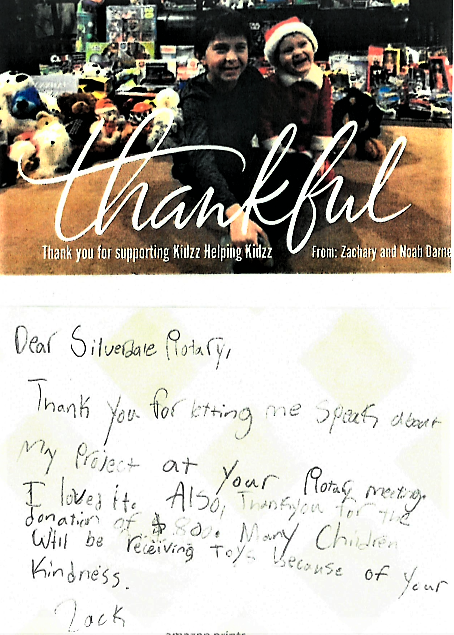 thankful
Thank you for supporting Kidzz Helping Kidzz
From: Zachary and Noah Darne
Dear Silverdale Rotary,
Thank you for letting me speak about
My Project at your Rotary meeting.
I loved it. Also, Thankyou for the
donation of $800. Many Children
Will be receiving toys because of your
Kindness.
Zack
amazon prints